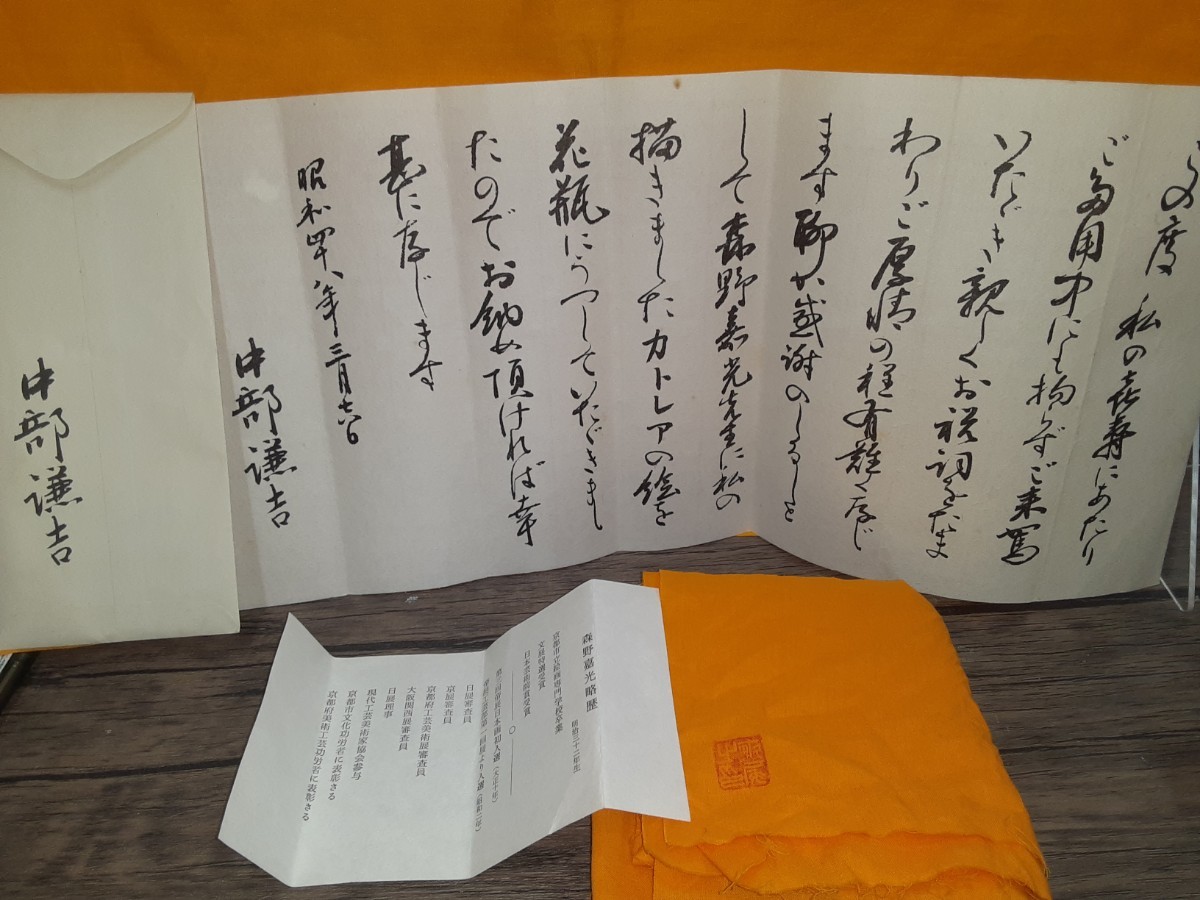 この度 私の喜寿にあたり
ご多用中にも拘らずご来駕
いただき親しくお祝詞をたま
わりご厚情の程有難く存じ
ます 聊か感謝のしるしと
して森野嘉光先生に私の
描きましたカトレアの絵を
花瓶にうつしていただきまし
たのでお納め頂ければ幸
甚に存じます
昭和四十八年三月六日
中部謙吉
中部謙吉
森野嘉光略歴
明治三十二年生
京都市立絵画専門学校卒業
文展特選受賞
日本芸術院賞受賞
○
第三回帝展日本画初入選(大正十年)
帝展工芸部第一回展より入選(昭和二年)
日展審査員
京展審査員
京都府工芸美術展審査員
大阪関西展審査員
日展理事
現代工芸美術家協会参与
京都市文化功労者に表彰さる
京都府美術工芸功労者に表彰さる